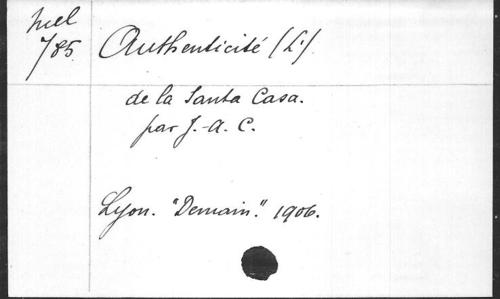 Mel
785
Authenticité (L').
de la Santa Casa.
par J.-A. C.
Lyon. "Demain." 1906.